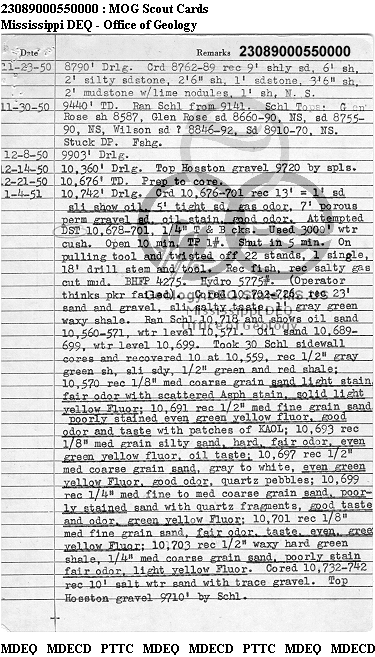 23089000550000 : MOG Scout Cards
Mississippi DEQ - Office of Geology
Date Remarks 23089000550000
11-23-50 8790' Drlg. Crd 8762-89 rec 9' shly sd, 6' sh,
2' silty sdstone, 2'6" sh, 1' sdstone, 3'6" sh,
2' mudstone w/lime nodules, 1' sh, N. S.
11-30-50 9440' TD. Ran Schl from 9141. Schl Tops: Glen
Rose sh 8587, Glen Rose sd 8660-90, NS, sd 8755-
90, NS, Wilson sd ? 8846-92, Sd 8910-70, NS.
Stuck DP. Fshg.
12-8-50 9903' Drlg.
12-14-50 10,360' Drlg. Top Hosston gravel 9720 by spls.
12-21-50 10,676' TD. Prep to core.
1-4-51 10,742' Drlg. Crd 10,676-701 rec 13' = 1' sd
sli show oil, 5' tight sd, gas odor, 7' porous
perm gravel sd, oil stain, good odor. Attempted
DST 10,678-701, 1/4" T & B cks. Used 3000' wtr
cush. Open 10 min, TP 1#. Shut in 5 min. On
pulling tool and twisted off 22 stands, 1 single,
18' drill stem and tool. Rec fish, rec salty gas
cut mud. BHFP 4275. Hydro 5775#. (Operator
thinks pkr failed). Cored 10,702-726, rec 23'
sand and gravel, sli salty taste, 1' gray green
waxy shale. Ran Schl 10,718 and shows oil sand
10,560-571, wtr level 10,571. Oil sand 10,689-
699, wtr level 10,699. Took 30 Schl sidewall
cores and recovered 10 at 10,559, rec 1/2" gray
green sh, sli sdy, 1/2" green and red shale;
10,570 rec 1/8" med coarse grain sand light stain,
fair odor with scattered Asph stain, solid light
yellow Fluor; 10,691 rec 1/2" med fine grain sand
poorly stained even green yellow fluor, good
odor and taste with patches of KAOL; 10,693 rec
1/8" med grain silty sand, hard, fair odor, even
green yellow fluor, oil taste; 10,697 rec 1/2"
med coarse grain sand, gray to white, even green
yellow Fluor, good odor, quartz pebbles; 10,699
rec 1/4" med fine to med coarse grain sand, poor-
ly stained sand with quartz fragments, good taste
and odor, green yellow Fluor; 10,701 rec 1/8"
med fine grain sand, fair odor, taste, even, green
yellow Fluor; 10,703 rec 1/2" waxy hard green
shale, 1/4" med coarse grain sand, poorly stain
fair odor, light yellow Fluor. Cored 10,732-742
rec 10' salt wtr sand with trace gravel. Top
Hosston gravel 9710' by Schl.
MDEQ MDECD PTTC MDEQ MDECD PTTC MDEQ MDECD